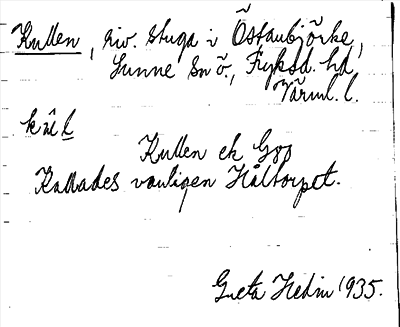 Kullen, riv. stuga i Östanbjörke,
Sunne sn ö., Fryksd. hd
Värml. l.
kùl
Kullen ek Goo
Kallades vanligen Håltorpet.
Greta Hedin 1935.